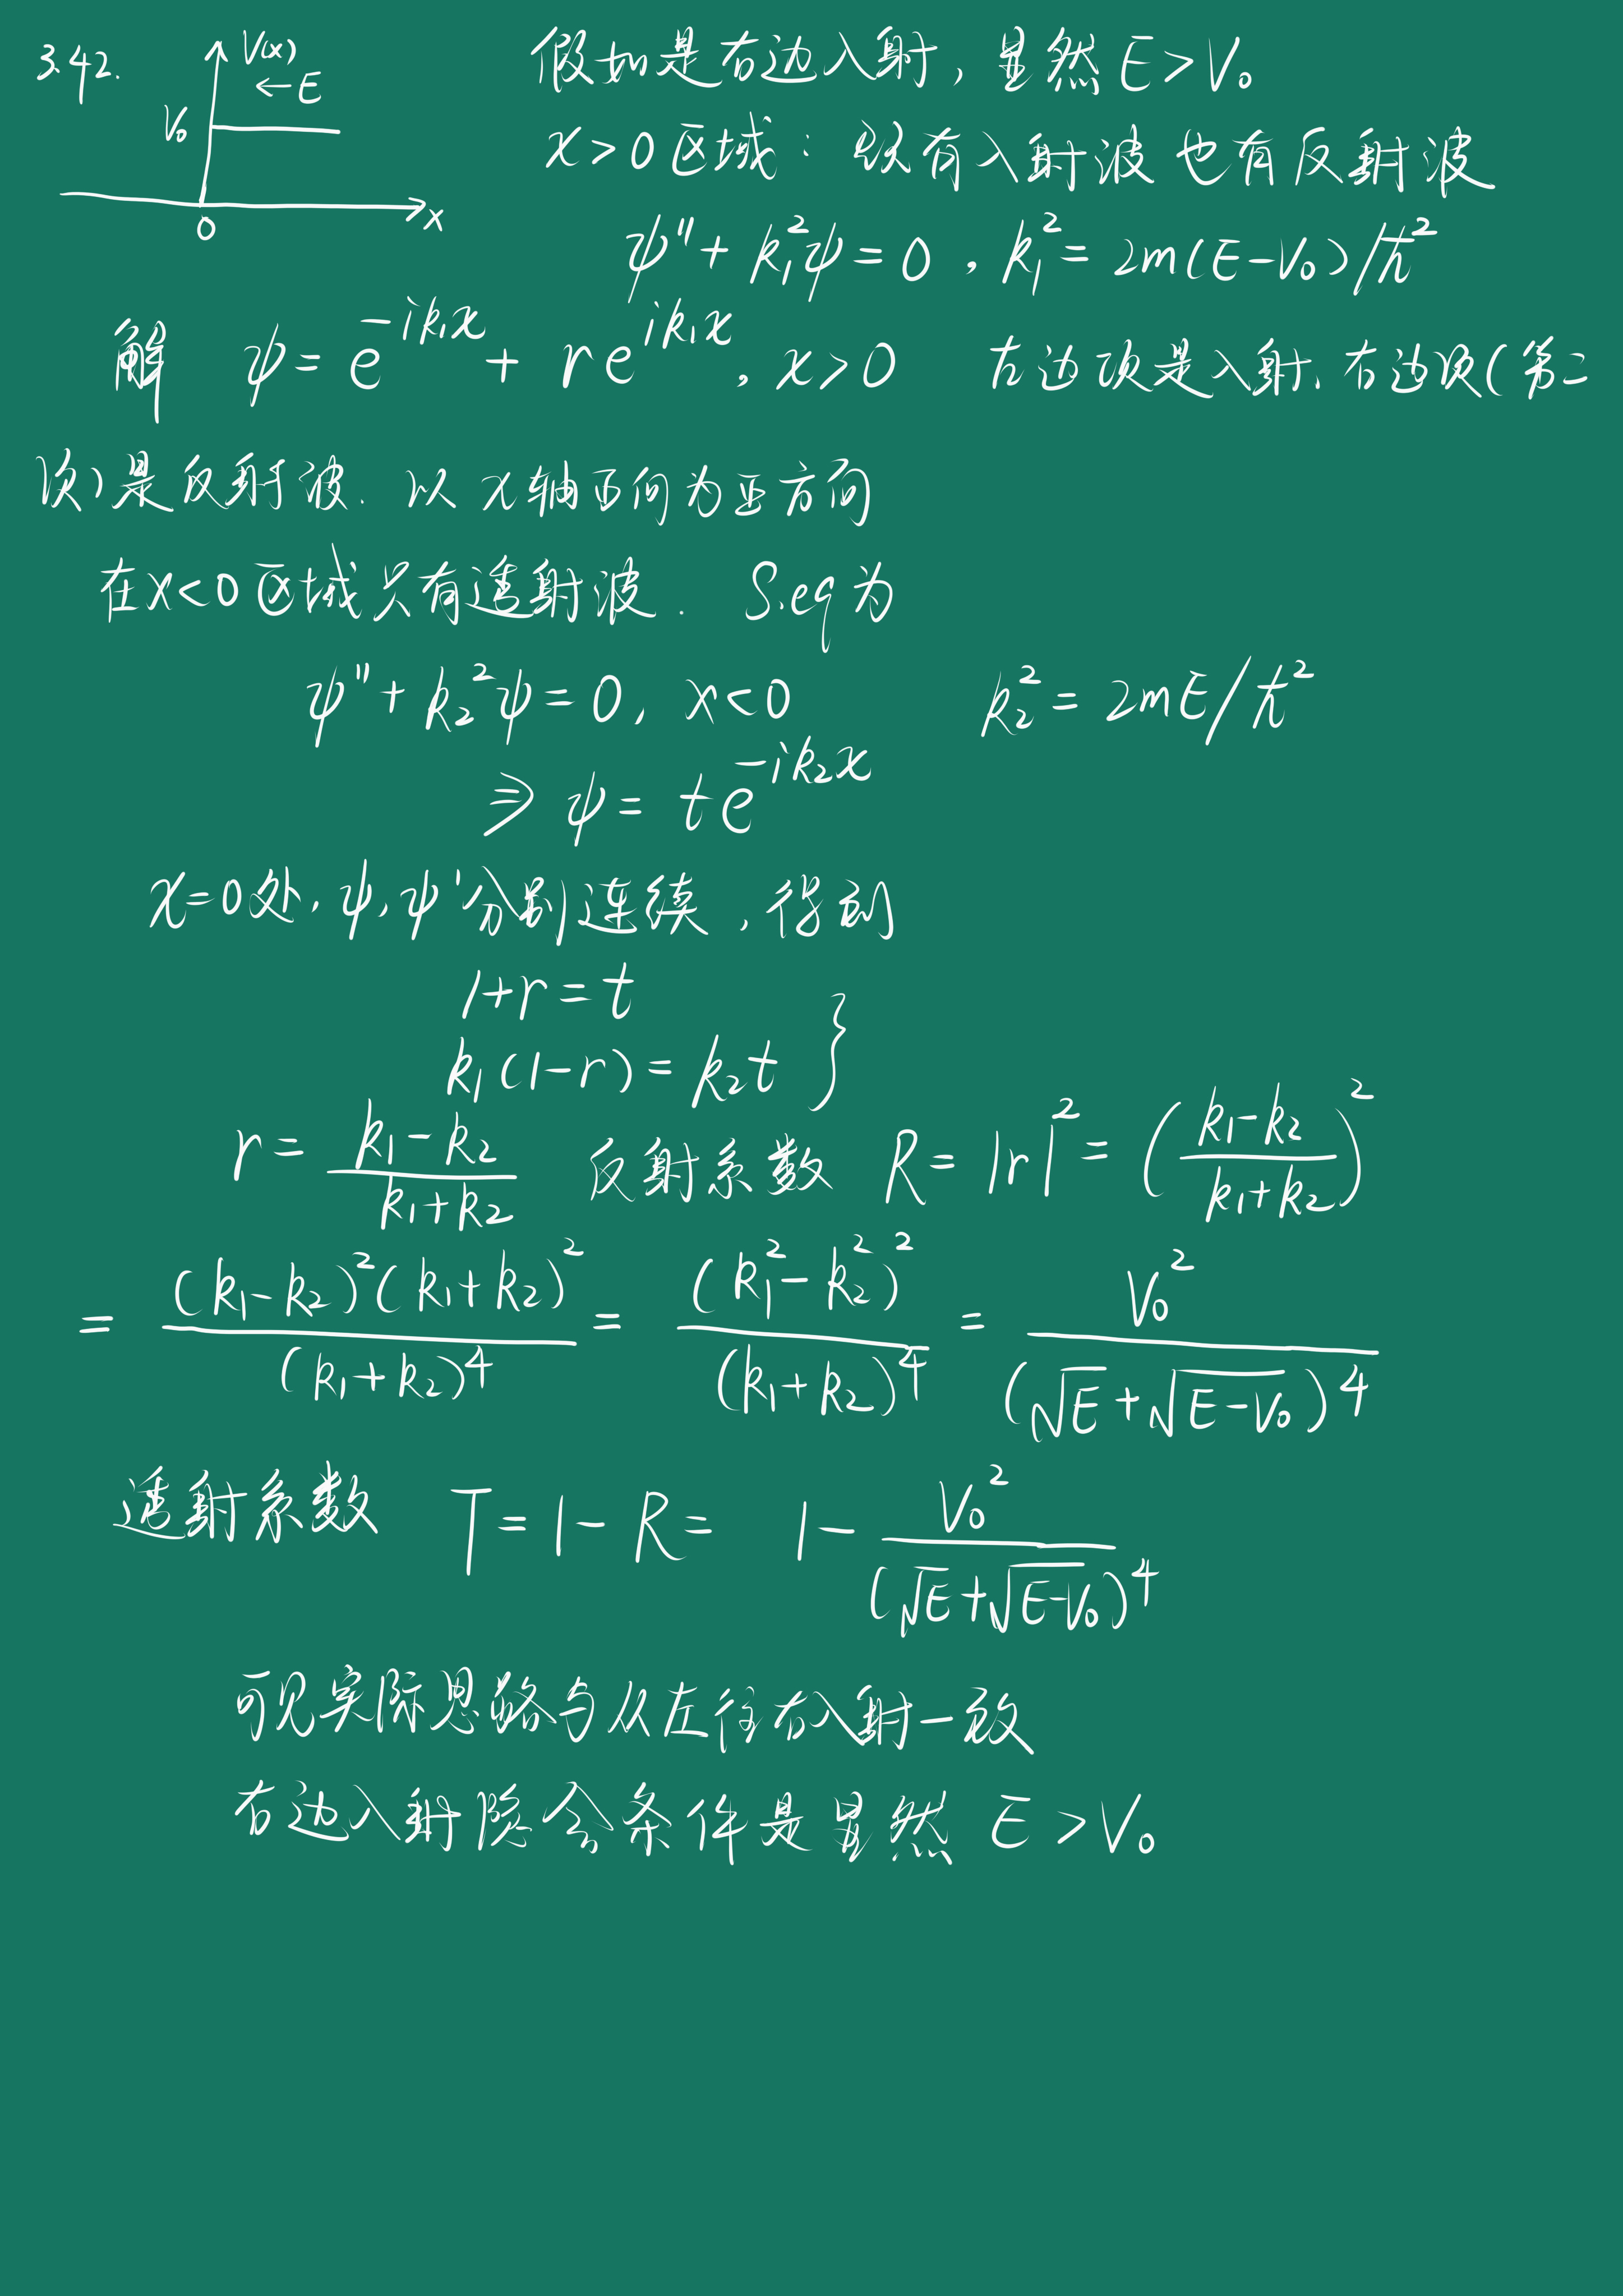 3.42.
V(x)
←E
V₀
0
x
假如是右边入射, 显然 E>V₀
x>0区域: 既有入射波也有反射波
ψ''+k₁²ψ=0, k₁²=2m(E-V₀)/ħ²
解 ψ=e^{-ik₁x}+re^{ik₁x}, x>0 左边项是入射, 右边项(第二
项)是反射波. 以x轴正向为正方向
在x<0区域只有透射波. S.eq为
ψ''+k₂²ψ=0, x<0 k₂²=2mE/ħ²
⇒ψ=te^{-ik₂x}
x=0处, ψ, ψ'分别连续, 得到
1+r=t
k₁(1-r)=k₂t }
r=\frac{k₁-k₂}{k₁+k₂} 反射系数 R=|r|²=(\frac{k₁-k₂}{k₁+k₂})²
=\frac{(k₁-k₂)²(k₁+k₂)²}{(k₁+k₂)⁴}=\frac{(k₁²-k₂²)²}{(k₁+k₂)⁴}=\frac{V₀²}{(√E+√(E-V₀))⁴}
透射系数 T=1-R=1-\frac{V₀²}{(√E+√(E-V₀))⁴}
可见实际思路与从左往右入射一致
右边入射隐含条件是显然 E>V₀